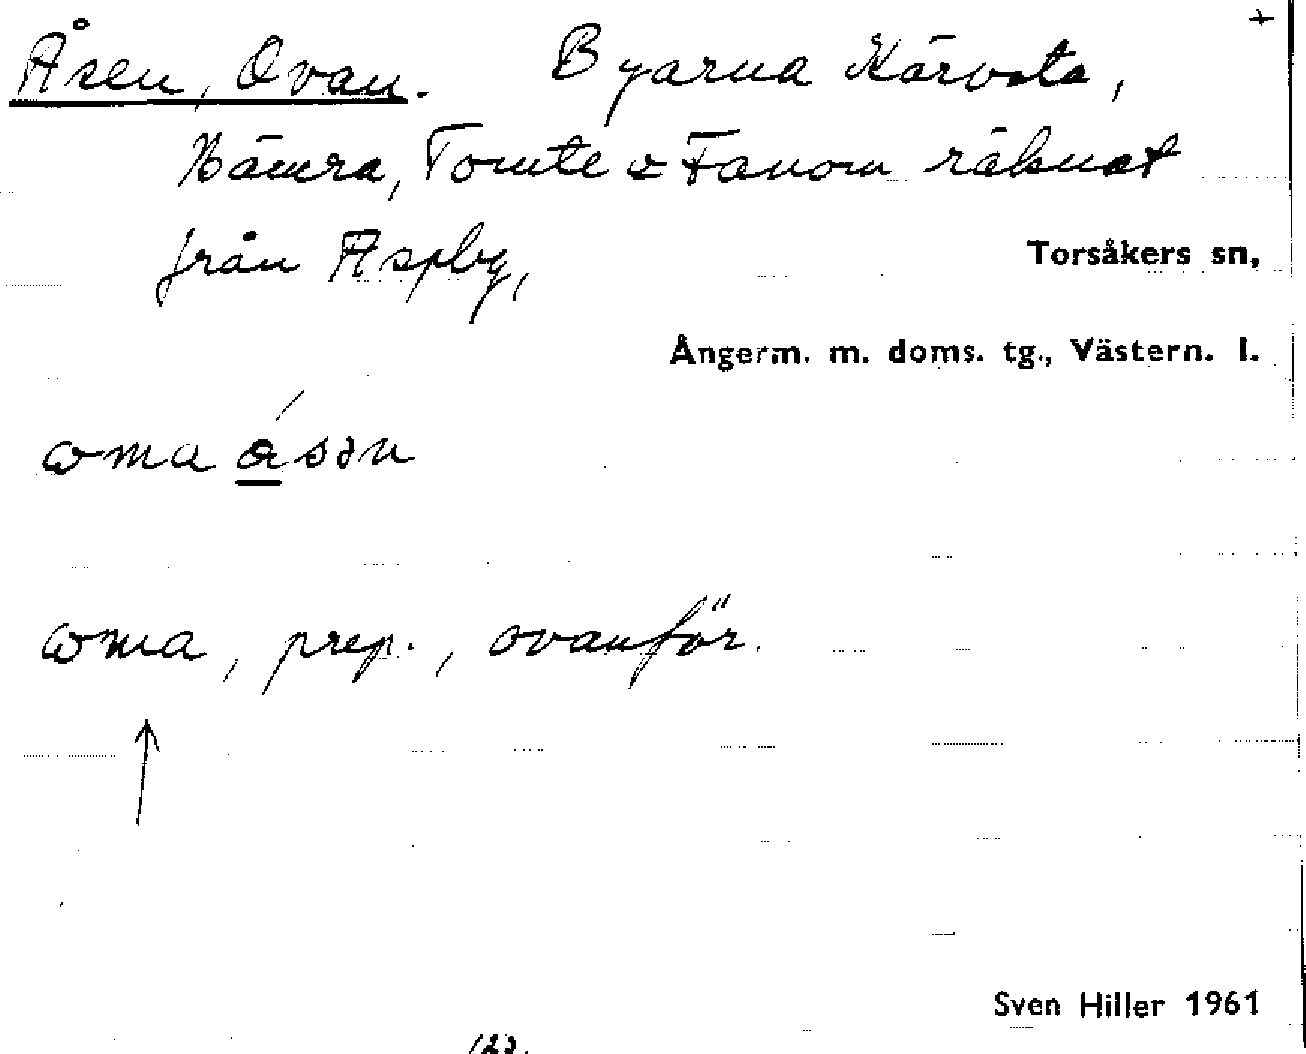 +
Åsen, Ovan. Byarna Kärvsta,
Hämra, Tomte & Fanom räknat
från Aspby,
Torsåkers sn,
Ångerm. m. doms. tg., Västern. l.
oma åsǝn
oma, prep., ovanför.
Sven Hiller 1961